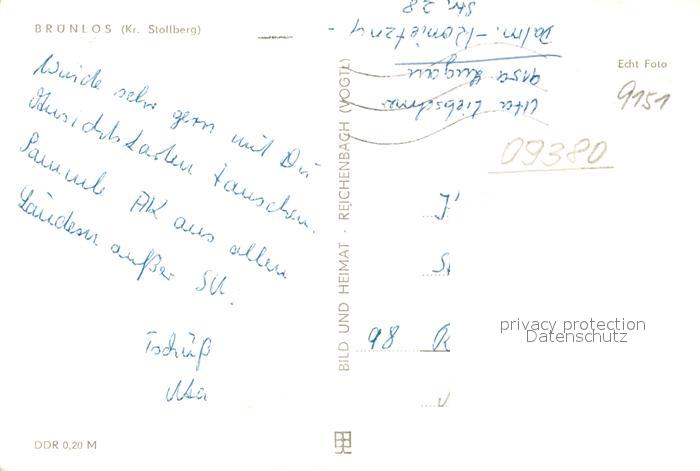 BRÜNLOS (Kr. Stollberg)
Würde sehr gern mit Dir
Ansichtskarten tauschen.
Sammle AK aus allen
Ländern außer SU.
Tschüß
Uta
DDR 0,20 M
BILD UND HEIMAT · REICHENBACH (VOGTL)
Uta Liebscher
9159 Lugau
Str. 28
Echt Foto
9151
09380
98
privacy protection
Datenschutz